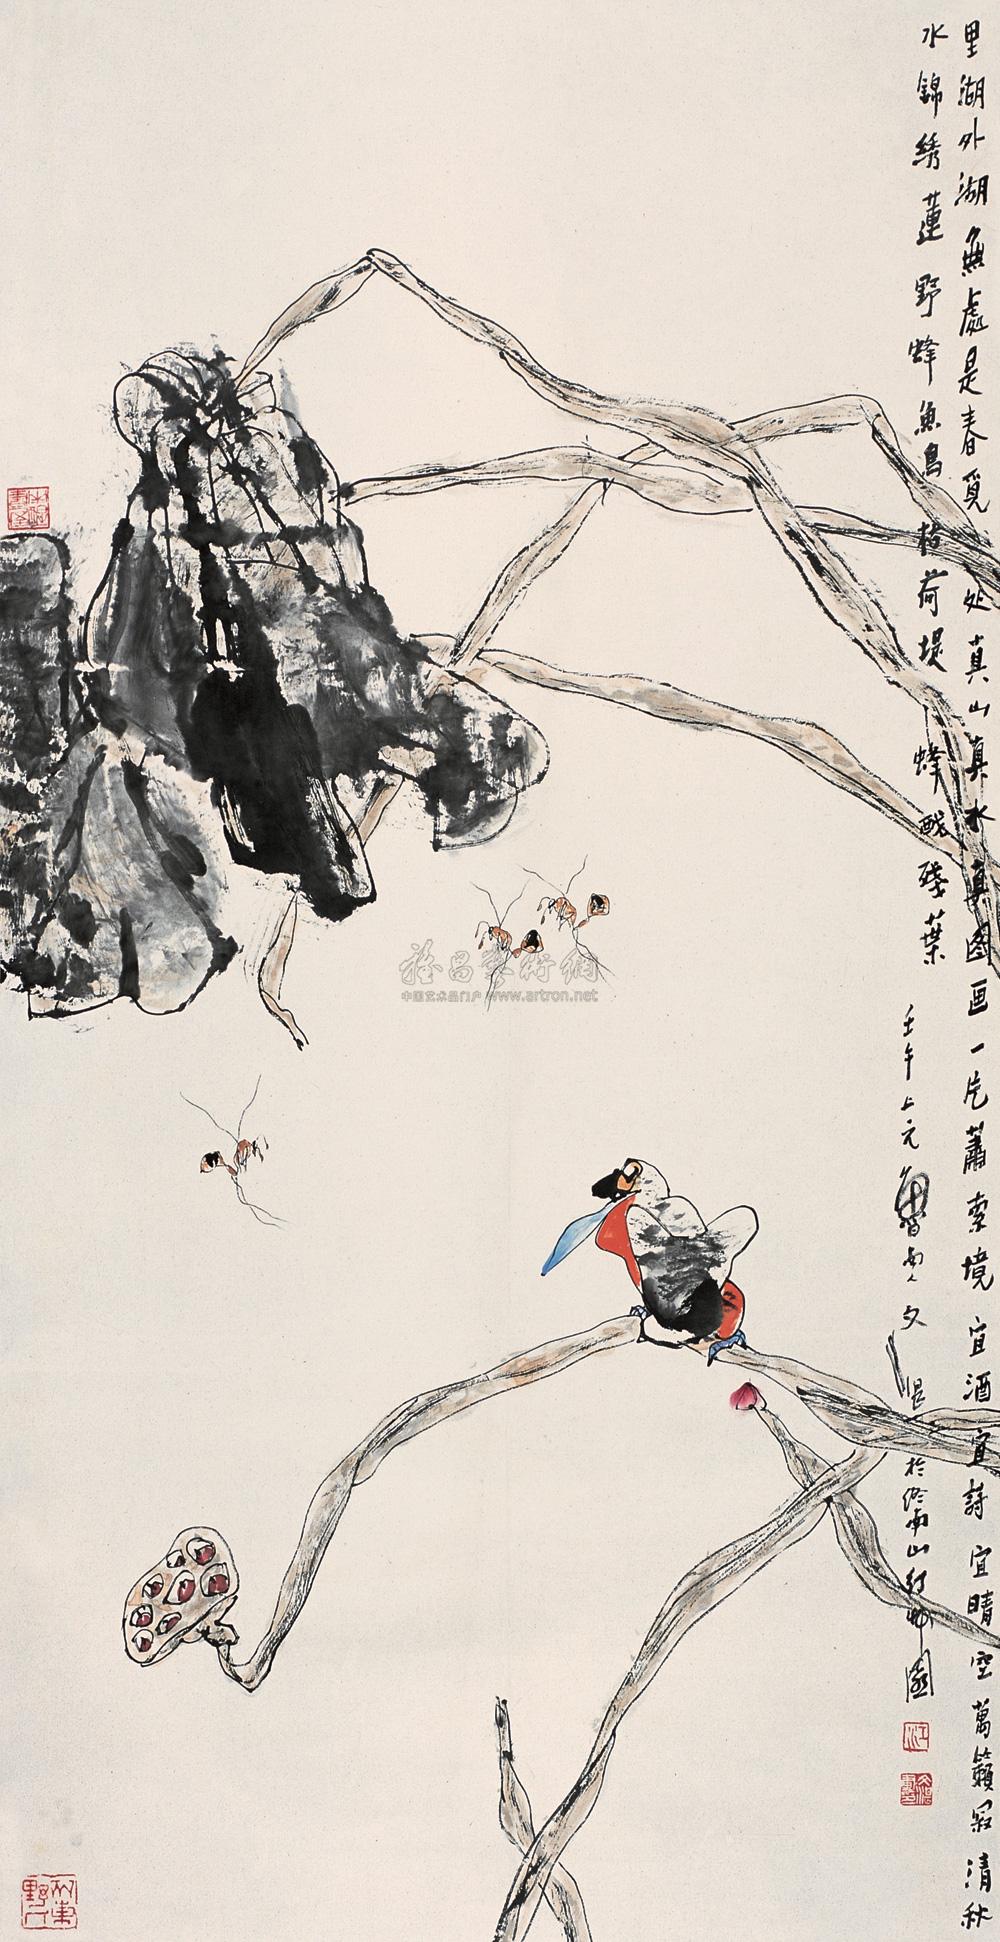 里湖外湖無處是春覓處真山真水真图画一片蕭索境宜酒宜詩宜晴空萬籟寂清秋
水錦綉蓮野蜂魚鳥枯荷堤蜂戲殘葉
壬午上元魯南人文堤於終南山紅柳園
中国艺术品门户 www.artron.net